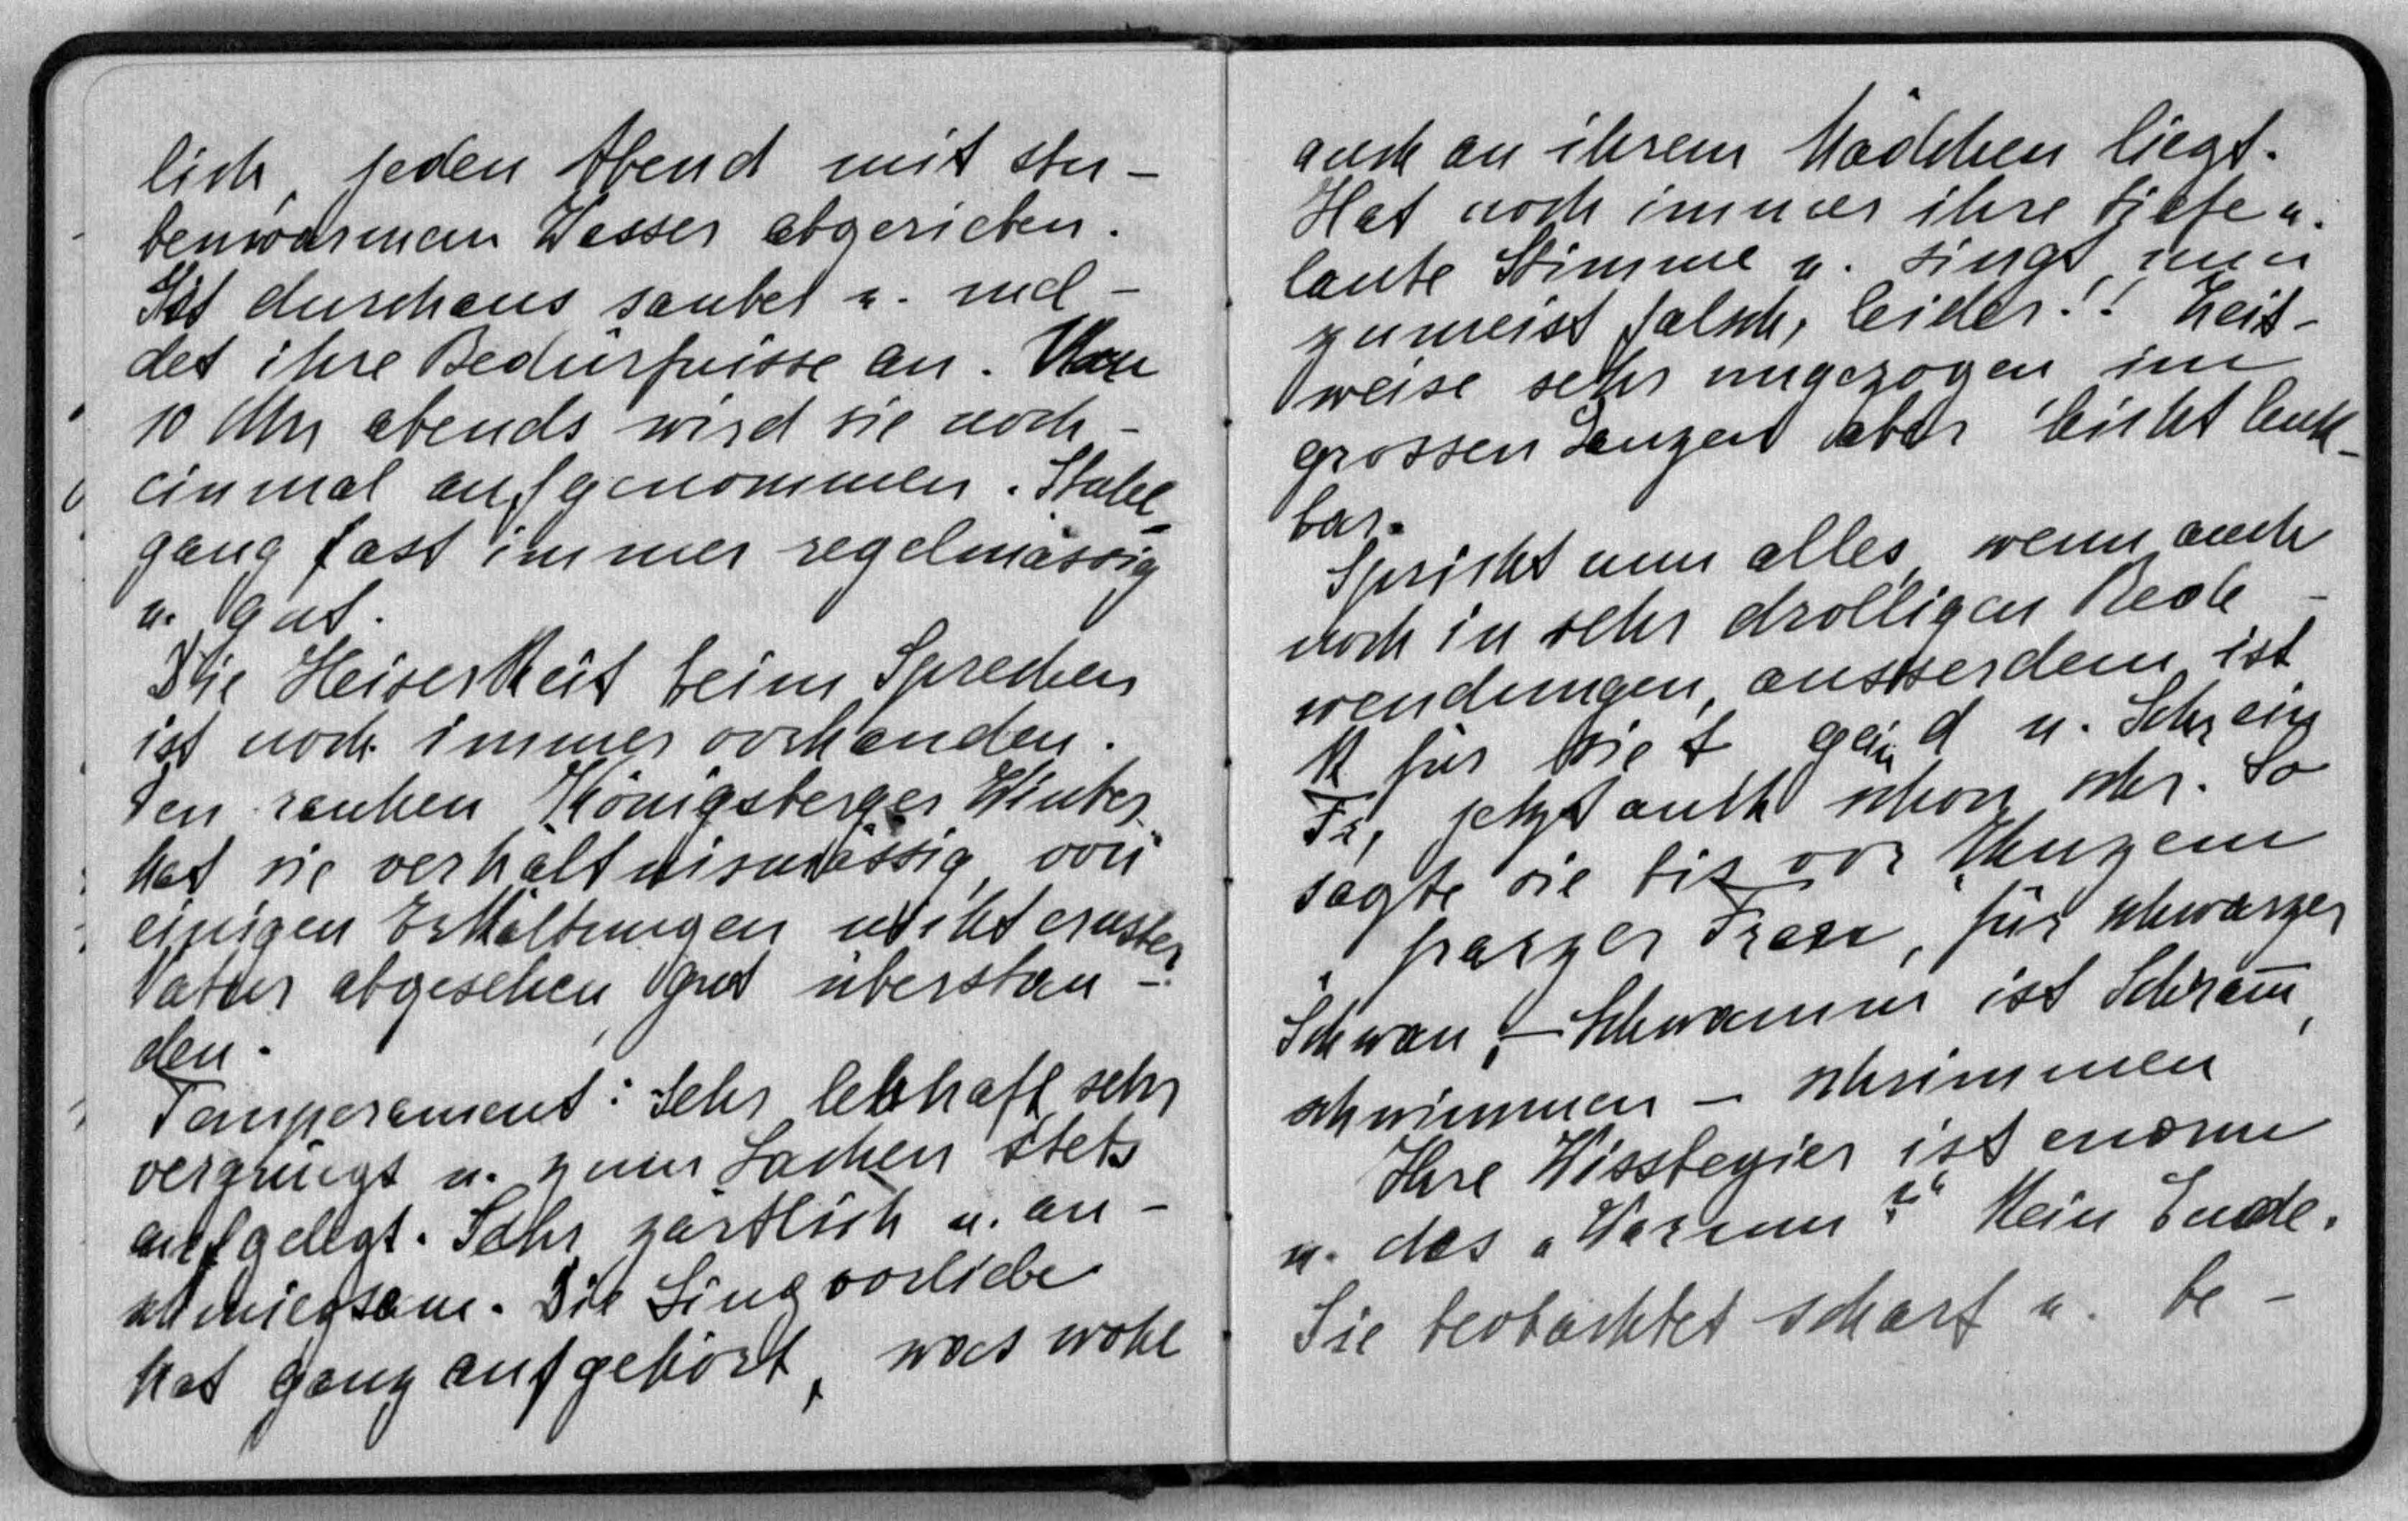 lich, jeden Abend mit stu-
benwarmem Wasser abgerieben.
Ist durchaus sauber u. mel-
det ihre Bedürfnisse an. Um
10 Uhr abends wird sie noch-
einmal aufgenommen. Stuhl-
gang fast immer regelmässig
u. gut.
Die Heiserkeit beim Sprechen
ist noch immer vorhanden.
Den rauhen Königsberger Winter
hat sie verhältnismässig, von
einigen Erkältungen nicht ernster
Natur abgesehen, gut überstan-
den.
Temperament: Sehr lebhaft, sehr
vergnügt u. zum Lachen stets
aufgelegt. Sehr zärtlich u. an-
schmiegsam. Die Singvorliebe
hat ganz aufgehört, was wohl
auch an ihrem Mädchen liegt.
Hat noch immer ihre tiefe u.
laute Stimme u. singt nun
zumeist falsch, leider!! Zeit-
weise sehr ungezogen im
grossen Ganzen aber leicht lenk-
bar.
Spricht nun alles, wenn auch
noch in sehr drolligen Rede-
wendungen, ausserdem ist
K für sie t u. Sch ein
Fr, jetzt auch schon schr. So
sagte sie bis vor Kurzem
frarzer Fran, für schwarzer
Schwan, - Schwamm ist Schram̅,
schwimmen - schrimmen
Ihre Wissbegier ist enorm
u. das „Warum?" kein Ende.
Sie beobachtet scharf u. be-